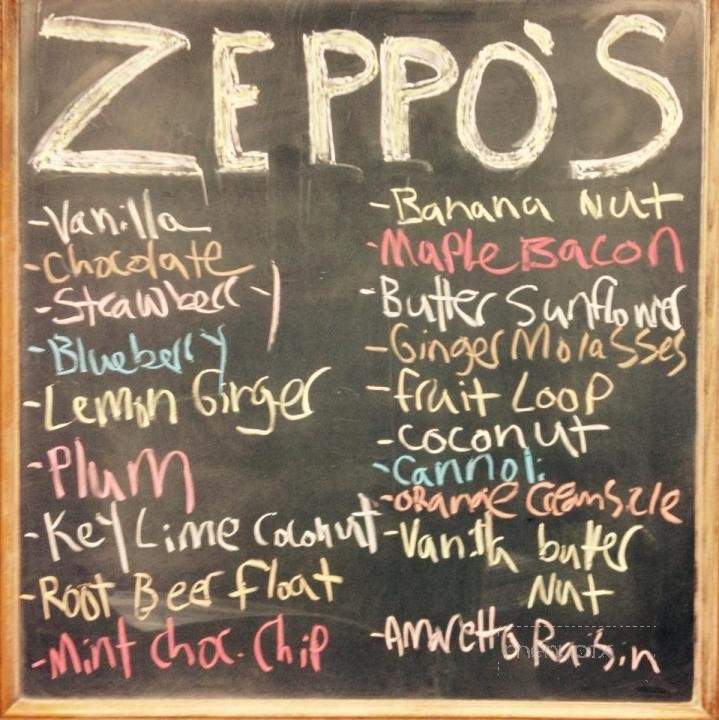 ZEPPO'S
-Vanilla
-Chocolate
-Strawberry
-Blueberry
-Lemon Ginger
-Plum
-Key Lime Coconut
-Root Beer float
-Mint Choc. Chip
-Banana Nut
-Maple Bacon
-Butter Sunflower
-Ginger Molasses
-fruit Loop
-coconut
-Cannoli
-Orange Creamsicle
-Vanilla butter
Nut
-Amaretto Raisin
menupix